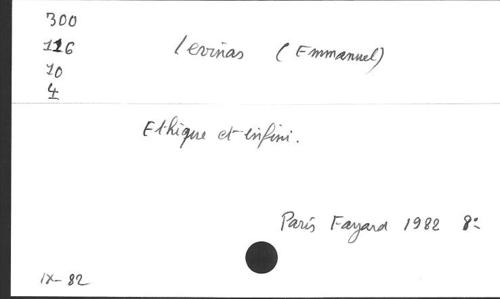 300
116
10
4
Levinas (Emmanuel)
Ethique et infini.
Paris Fayard 1982 8º
IX-82